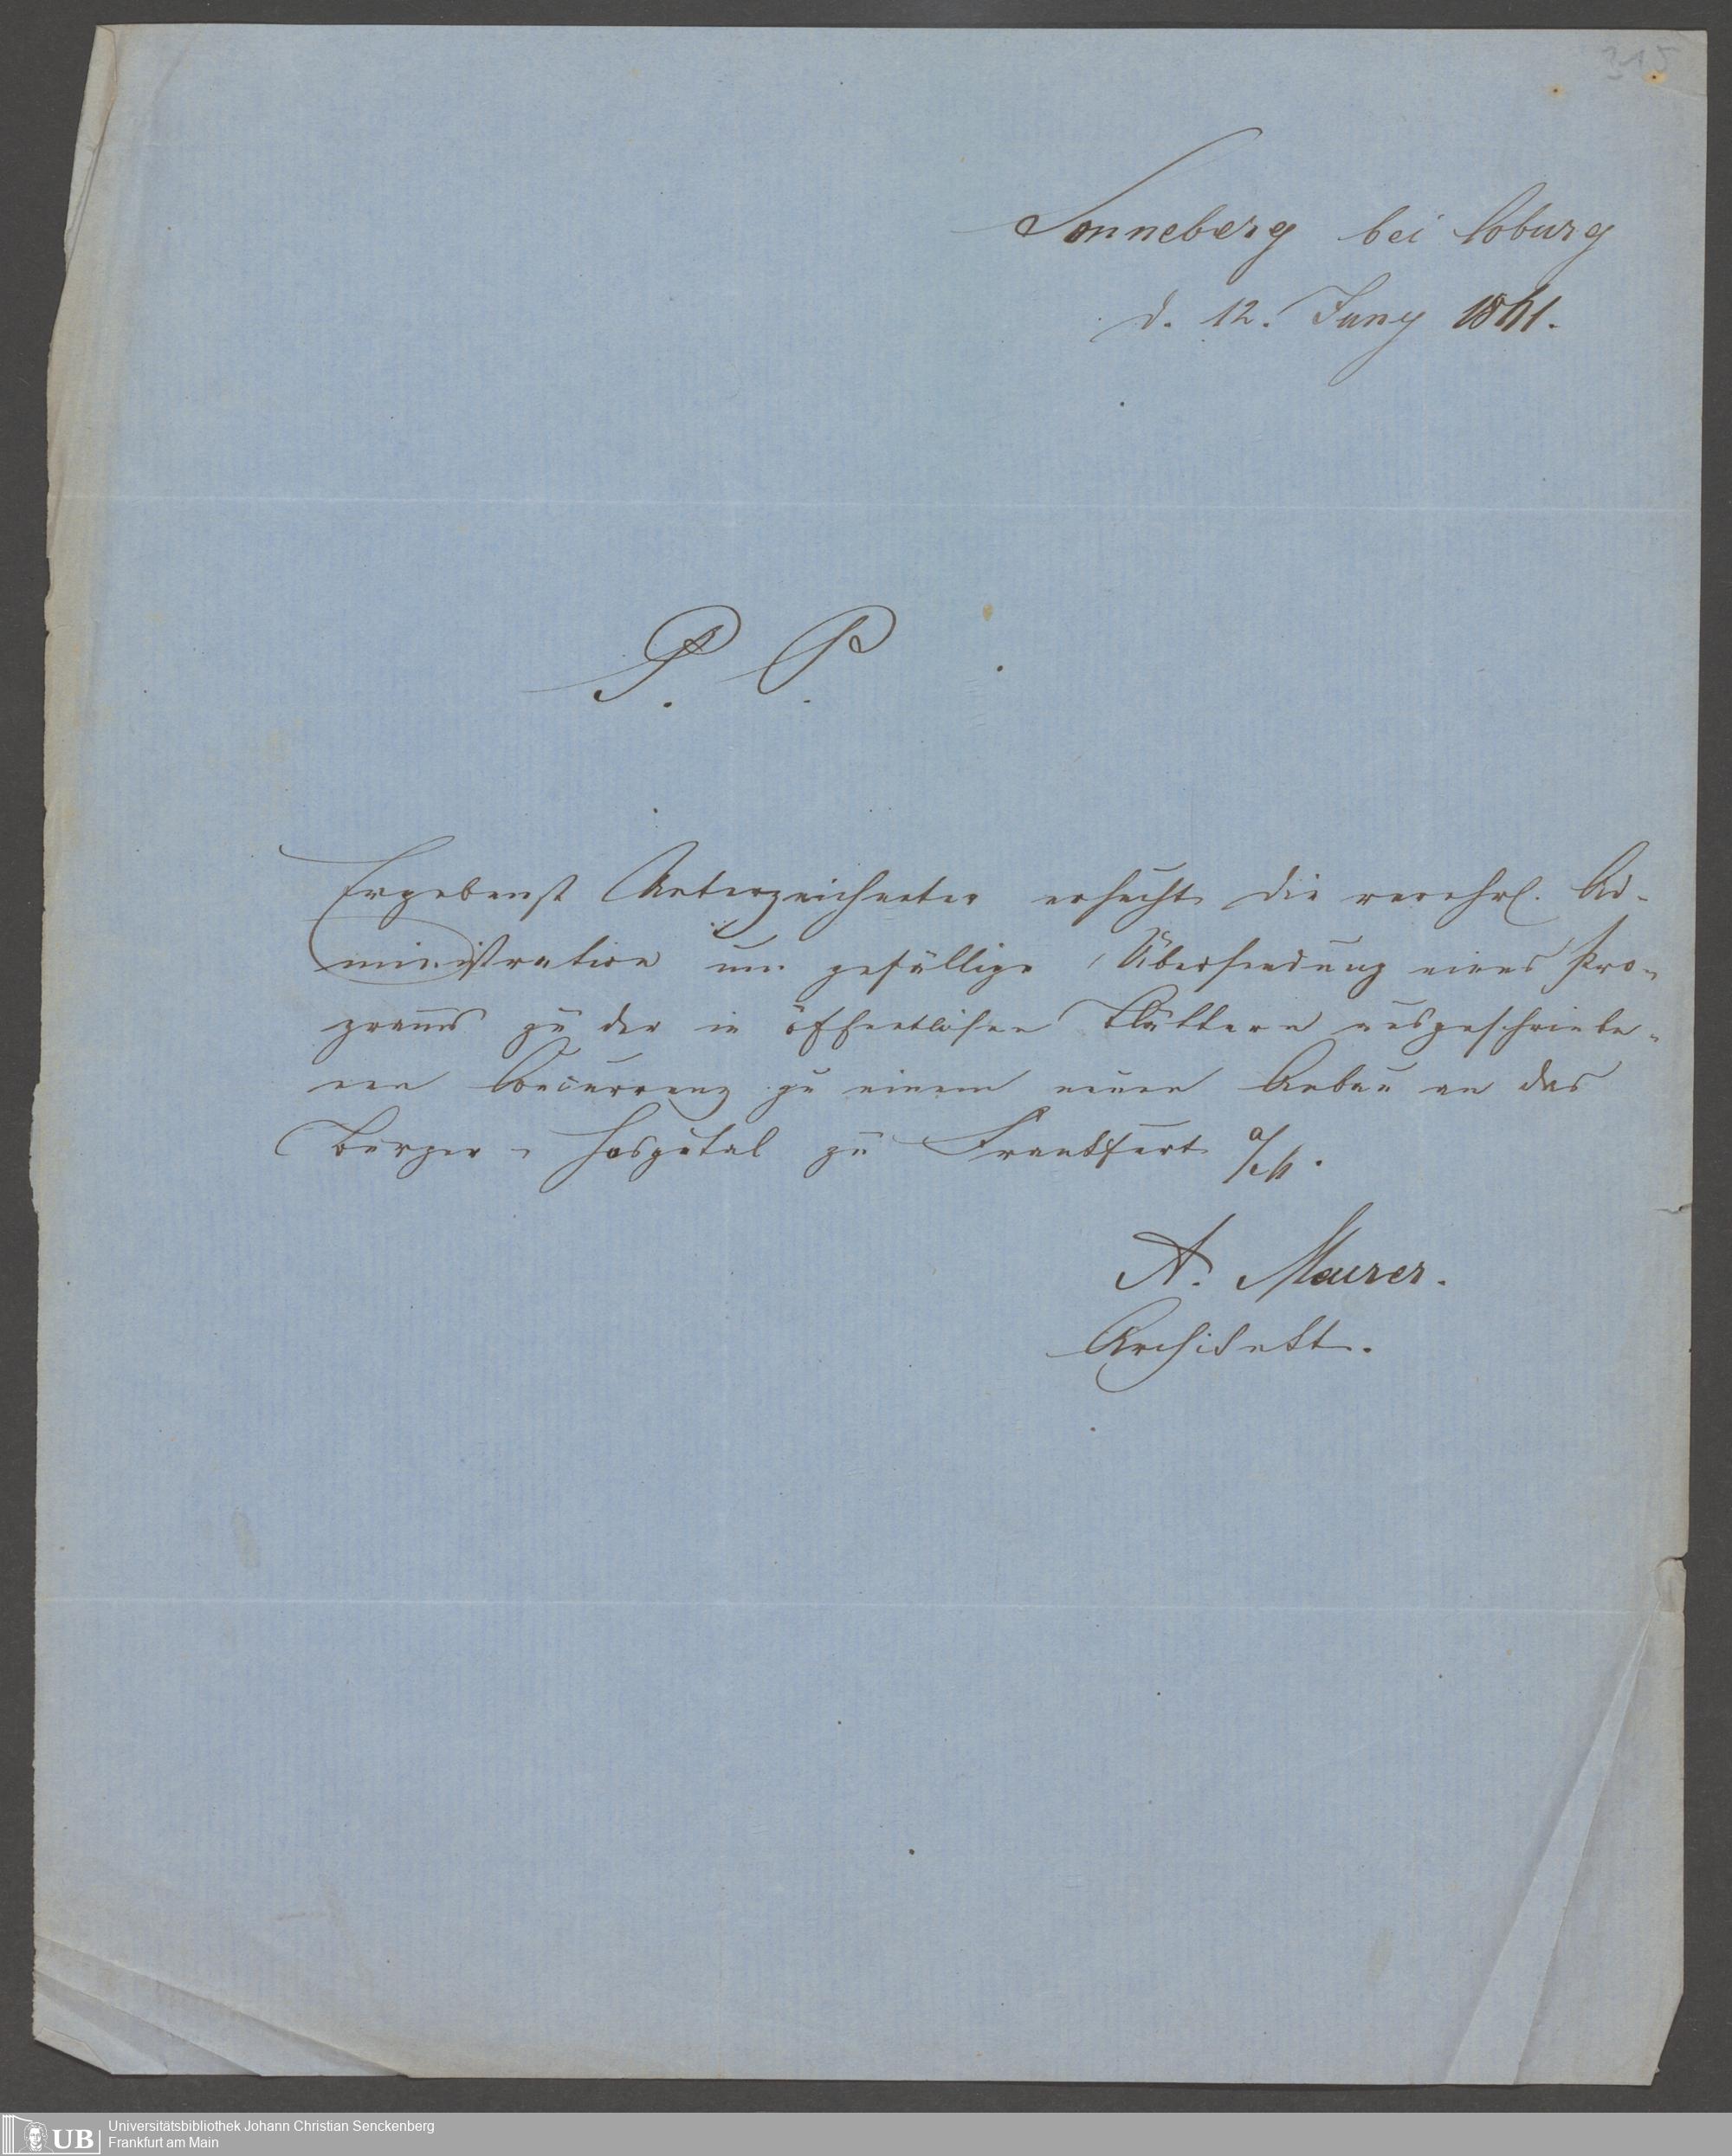 315
Sonneberg bei Coburg
d. 12. Juny 1861.
P. P.
Ergebenst Unterzeichneter ersucht die verehrl. Ad-
ministration um gefällige Übersendung eines Pro-
gramms zu der in öffentlichen Blättern ausgeschriebe-
nen Concurrenz zu einem neuen Anbau an das
Bürger-Hospital zu Frankfurt a/M.
A. Maurer.
Architekt.
UB
Universitätsbibliothek Johann Christian Senckenberg
Frankfurt am Main